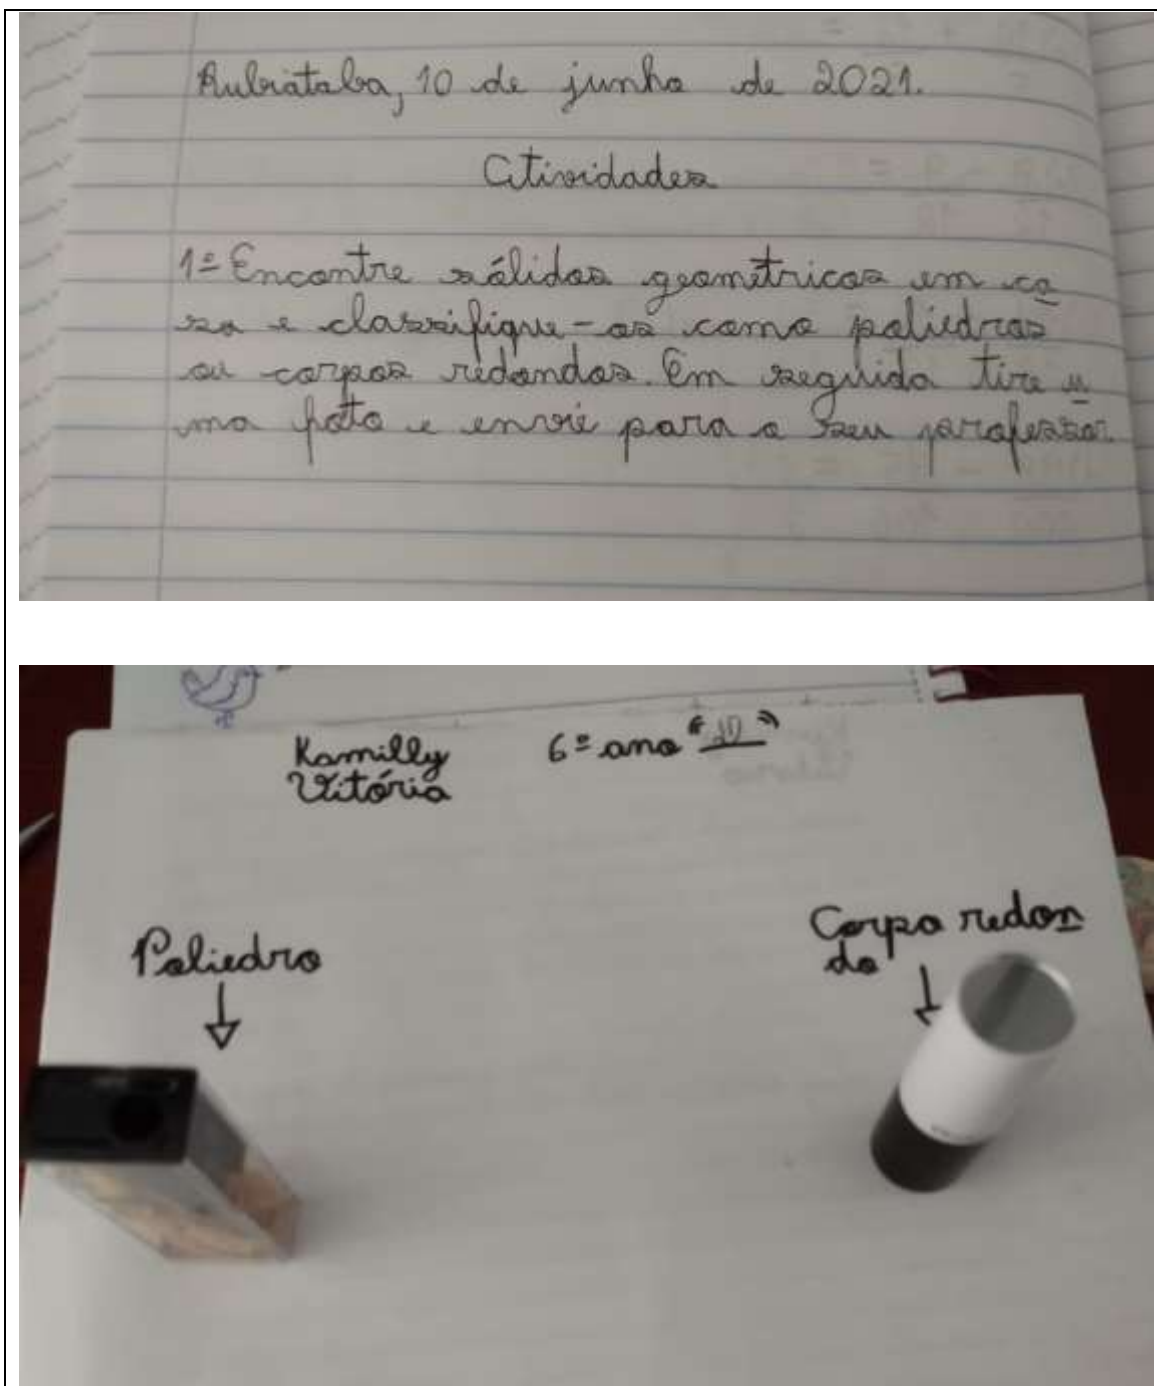 Rubiataba, 10 de junho de 2021.
Atividades
1º Encontre sólidos geométricos em ca
sa e classifique-os como poliedros
ou corpos redondos. Em seguida tire u
ma foto e envie para o seu professor.
Kamilly 6º ano "D"
Vitória
Poliedro
Corpo redon
do